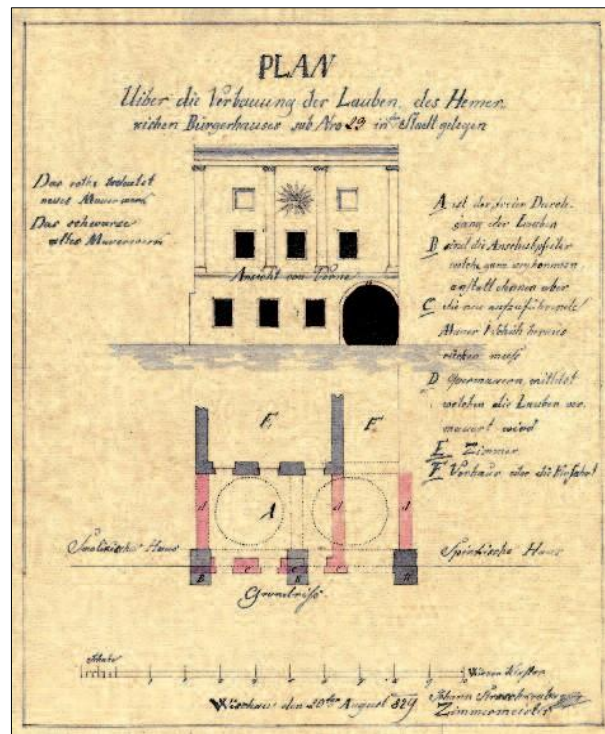 PLAN
Uiber die Verbauung der Lauben, des Hemer
rischen Bürgerhauses sub Nro 23 in der Stadt gelegen
Das rothe bedeutet
neues Mauerwerk
Das schwarze
altes Mauerwerk
Ansicht von Vorne
A ist der freie Durch
gang der Lauben
B sind die Anschubpfeiler
welche ganz wegkommen
anstatt denen aber
C die neu aufzuführende
Mauer 1 Schuh heraus
rücken muß
D Quermauern mittelst
welchen die Lauben ver
mauert wird
E Zimmer
F Vorhaus oder die Einfahrt
F
A
d
d
d
Spinkische Haus
B
c
c
c
Grundriß
Schuhe
Wiener Klafter
den 20ten August 829
Johann
Zimmermeister